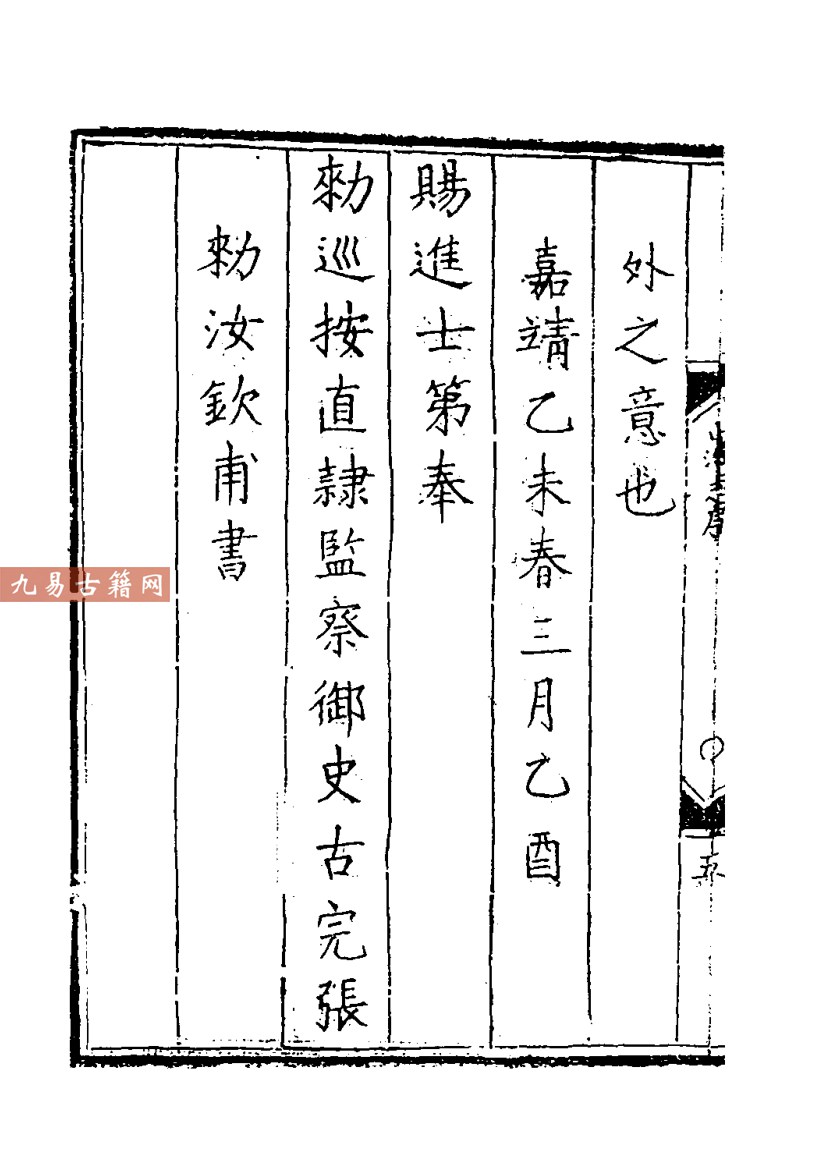 外之意也
嘉靖乙未春三月乙酉
賜進士第奉
勑巡按直隸監察御史古完張
勑汝欽甫書
五
九易古籍网